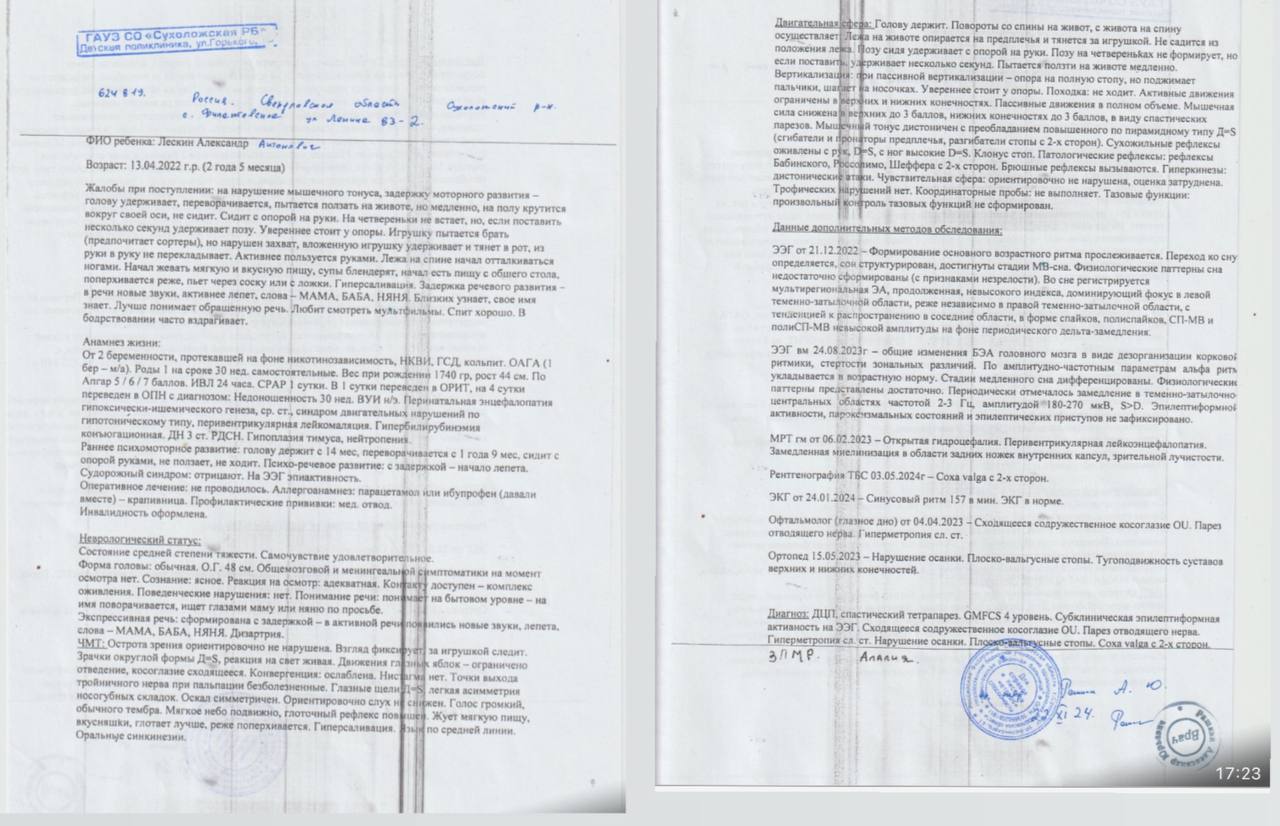 ГАУЗ СО «Сухоложская РБ»
Детская поликлиника, ул.Горького
624819. Россия. Свердловская область Сухоложский р-н.
с. Филатовское ул Ленина 83-2.
ФИО ребенка: Лескин Александр Антонович
Возраст: 13.04.2022 г.р. (2 года 5 месяца)
Жалобы при поступлении: на нарушение мышечного тонуса, задержку моторного развития –
голову удерживает, переворачивается, пытается ползать на животе, но медленно, на полу крутится
вокруг своей оси, не сидит. Сидит с опорой на руки. На четвереньки не встает, но, если поставить
несколько секунд удерживает позу. Увереннее стоит у опоры. Игрушку пытается брать
(предпочитает сортеры), но нарушен захват, вложенную игрушку удерживает и тянет в рот, из
руки в руку не перекладывает. Активнее пользуется руками. Лежа на спине начал отталкиваться
ногами. Начал жевать мягкую и вкусную пищу, супы блендерят, начал есть пищу с общего стола,
поперхивается реже, пьет через соску или с ложки. Гиперсаливация. Задержка речевого развития –
в речи новые звуки, активнее лепет, слова – МАМА, БАБА, НЯНЯ. Близких узнает, свое имя
знает. Лучше понимает обращенную речь. Любит смотреть мультфильмы. Спит хорошо. В
бодрствовании часто вздрагивает.
Анамнез жизни:
От 2 беременности, протекавшей на фоне никотинозависимость, НКВИ, ГСД, кольпит. ОАГА (1
бер – м/а). Роды 1 на сроке 30 нед. самостоятельные. Вес при рождении 1740 гр, рост 44 см. По
Апгар 5 / 6 / 7 баллов. ИВЛ 24 часа. CPAP 1 сутки. В 1 сутки переведен в ОРИТ, на 4 сутки
переведен в ОПН с диагнозом: Недоношенность 30 нед. ВУИ н/э. Перинатальная энцефалопатия
гипоксически-ишемического генеза, ср. ст., синдром двигательных нарушений по
гипотоническому типу, перивентрикулярная лейкомаляция. Гипербилирубинэмия
конъюгационная. ДН 3 ст. РДСН. Гипоплазия тимуса, нейтропения.
Раннее психомоторное развитие: голову держит с 14 мес, переворачивается с 1 года 9 мес, сидит с
опорой руками, не ползает, не ходит. Психо-речевое развитие: с задержкой – начало лепета.
Судорожный синдром: отрицают. На ЭЭГ эпиактивность.
Оперативное лечение: не проводилось. Аллергоанамнез: парацетамол или ибупрофен (давали
вместе) – крапивница. Профилактические прививки: мед. отвод.
Инвалидность оформлена.
Неврологический статус:
Состояние средней степени тяжести. Самочувствие удовлетворительное.
Форма головы: обычная. О.Г. 48 см. Общемозговой и менингеальной симптоматики на момент
осмотра нет. Сознание: ясное. Реакция на осмотр: адекватная. Контакту доступен – комплекс
оживления. Поведенческие нарушения: нет. Понимание речи: понимает на бытовом уровне – на
имя поворачивается, ищет глазами маму или няню по просьбе.
Экспрессивная речь: сформирована с задержкой – в активной речи появились новые звуки, лепета,
слова – МАМА, БАБА, НЯНЯ. Дизартрия.
ЧМТ: Острота зрения ориентировочно не нарушена. Взгляд фиксирует, за игрушкой следит.
Зрачки округлой формы Д=S, реакция на свет живая. Движения глазных яблок – ограничено
отведение, косоглазие сходящееся. Конвергенция: ослаблена. Нистагма нет. Точки выхода
тройничного нерва при пальпации безболезненные. Глазные щели Д=S, легкая асимметрия
носогубных складок. Оскал симметричен. Ориентировочно слух не снижен. Голос громкий,
обычного тембра. Мягкое небо подвижно, глоточный рефлекс повышен. Жует мягкую пищу,
вкусняшки, глотает лучше, реже поперхивается. Гиперсаливация. Язык по средней линии.
Оральные синкинезии.
Двигательная сфера: Голову держит. Повороты со спины на живот, с живота на спину
осуществляет. Лежа на животе опирается на предплечья и тянется за игрушкой. Не садится из
положения лежа. Позу сидя удерживает с опорой на руки. Позу на четвереньках не формирует, но
если поставить, удерживает несколько секунд. Пытается ползти на животе медленно.
Вертикализация: при пассивной вертикализации – опора на полную стопу, но поджимает
пальчики, шагает на носочках. Увереннее стоит у опоры. Походка: не ходит. Активные движения
ограничены в верхних и нижних конечностях. Пассивные движения в полном объеме. Мышечная
сила снижена в верхних до 3 баллов, нижних конечностях до 3 баллов, в виду спастических
парезов. Мышечный тонус дистоничен с преобладанием повышенного по пирамидному типу Д=S
(сгибатели и пронаторы предплечья, разгибатели стопы с 2-х сторон). Сухожильные рефлексы
оживлены с рук, D=S, с ног высокие D=S. Клонус стоп. Патологические рефлексы: рефлексы
Бабинского, Россолимо, Шеффера с 2-х сторон. Брюшные рефлексы вызываются. Гиперкинезы:
дистонические атаки. Чувствительная сфера: ориентировочно не нарушена, оценка затруднена.
Трофических нарушений нет. Координаторные пробы: не выполняет. Тазовые функции:
произвольный контроль тазовых функций не сформирован.
Данные дополнительных методов обследования:
ЭЭГ от 21.12.2022 – Формирование основного возрастного ритма прослеживается. Переход ко сну
определяется, сон структурирован, достигнуты стадии МВ-сна. Физиологические паттерны сна
недостаточно сформированы (с признаками незрелости). Во сне регистрируется
мультирегиональная ЭА, продолженная, невысокого индекса, доминирующий фокус в левой
теменно-затылочной области, реже независимо в правой теменно-затылочной области, с
тенденцией к распространению в соседние области, в форме спайков, полиспайков, СП-МВ и
полиСП-МВ невысокой амплитуды на фоне периодического дельта-замедления.
ЭЭГ вм 24.08.2023г – общие изменения БЭА головного мозга в виде дезорганизации корковой
ритмики, стертости зональных различий. По амплитудно-частотным параметрам альфа ритм
укладывается в возрастную норму. Стадии медленного сна дифференцированы. Физиологические
паттерны представлены достаточно. Периодически отмечалось замедление в теменно-затылочно-
центральных областях частотой 2-3 Гц, амплитудой 180-270 мкВ, S>D. Эпилептиформной
активности, пароксизмальных состояний и эпилептических приступов не зафиксировано.
МРТ гм от 06.02.2023 – Открытая гидроцефалия. Перивентрикулярная лейкоэнцефалопатия.
Замедленная миелинизация в области задних ножек внутренних капсул, зрительной лучистости.
Рентгенография ТБС 03.05.2024г – Coxa valga с 2-х сторон.
ЭКГ от 24.01.2024 – Синусовый ритм 157 в мин. ЭКГ в норме.
Офтальмолог (глазное дно) от 04.04.2023 – Сходящееся содружественное косоглазие OU. Парез
отводящего нерва. Гиперметропия сл. ст.
Ортопед 15.05.2023 – Нарушение осанки. Плоско-вальгусные стопы. Тугоподвижность суставов
верхних и нижних конечностей.
Диагноз: ДЦП, спастический тетрапарез. GMFCS 4 уровень. Субклиническая эпилептиформная
активность на ЭЭГ. Сходящееся содружественное косоглазие OU. Парез отводящего нерва.
Гиперметропия сл. ст. Нарушение осанки. Плоско-вальгусные стопы. Coxa valga с 2-х сторон.
ЗПМР. Алалия.
А. Ю.
XI 24.
Врач
17:23